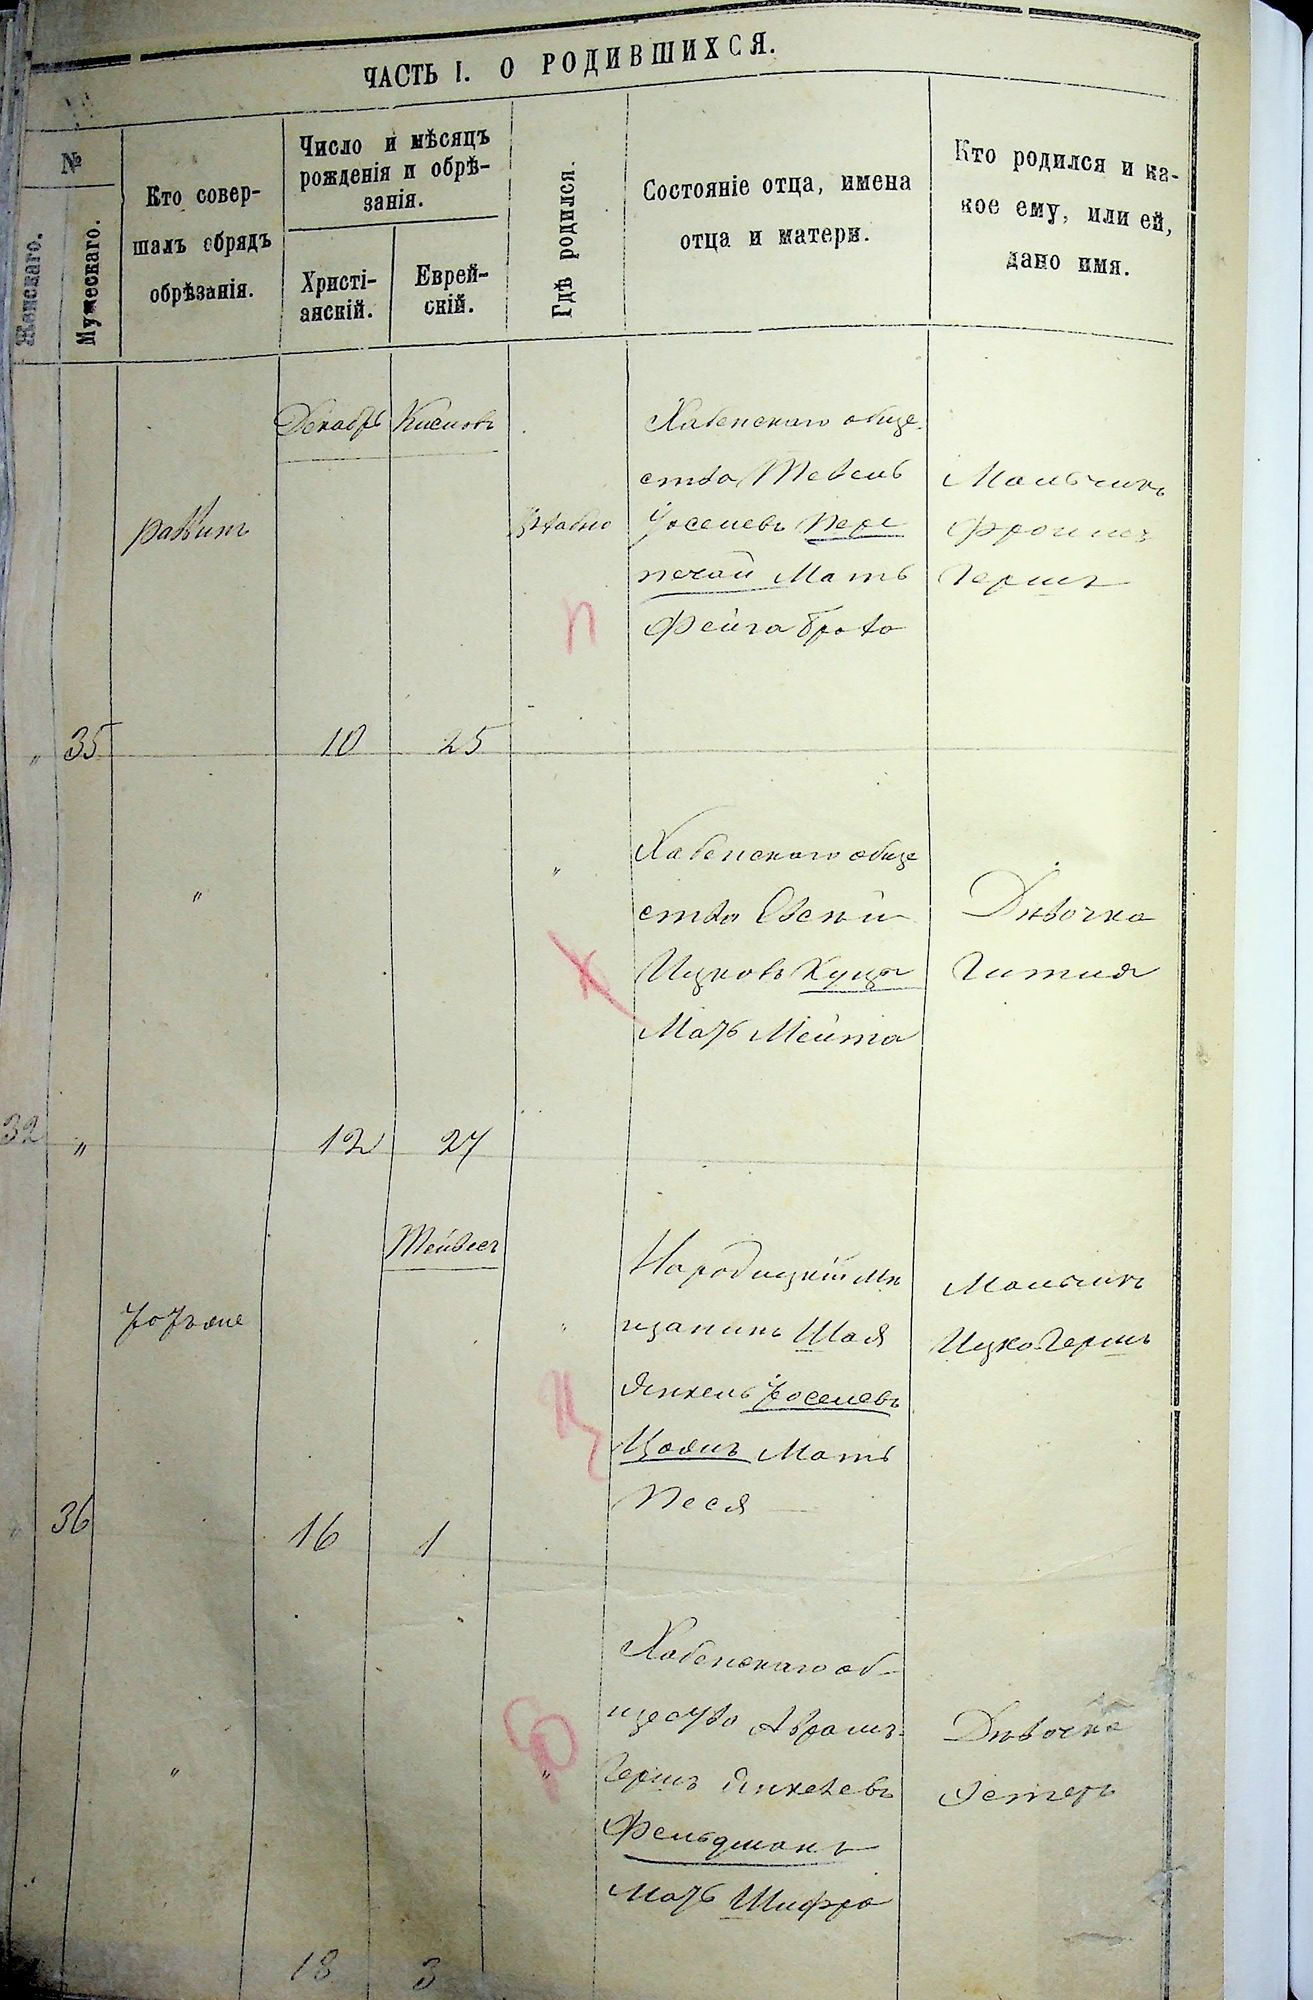 ЧАСТЬ I. О РОДИВШИХСЯ.
№
Женскаго.
Мужескаго.
Кто совер-
шалъ обрядъ
обрѣзанія.
Число и мѣсяцъ
рожденія и обрѣ-
занія.
Христі-
анскій.
Еврей-
скій.
Гдѣ родился.
Состояніе отца, имена
отца и матери.
Кто родился и ка-
кое ему, или ей,
дано имя.
Декабрь
Кислевъ
раввинъ
Хабенскаго обще
ства Тевель
Іоселевъ Пере
печай Мать
Фейга Брава
Мальчикъ
Фроимъ
Гершъ
П
„
35
10
25
„
„
Хабенскаго обще
ства Евсей
Ицковъ Куца
Мать Мейта
Дѣвочка
Гитля
К
32
„
12
27
Тейвесъ
„
Народицкій мѣ
щанинъ Шая
Янкель Іоселевъ
Мать
Песя
Мальчикъ
Ицко Гершъ
Ц
„
36
16
1
„
„
Хабенскаго об-
щества Аврамъ-
Гершъ Янкелевъ
Фельдманъ
Мать Шифра
Дѣвочка
Эстеръ
Ф
18
3